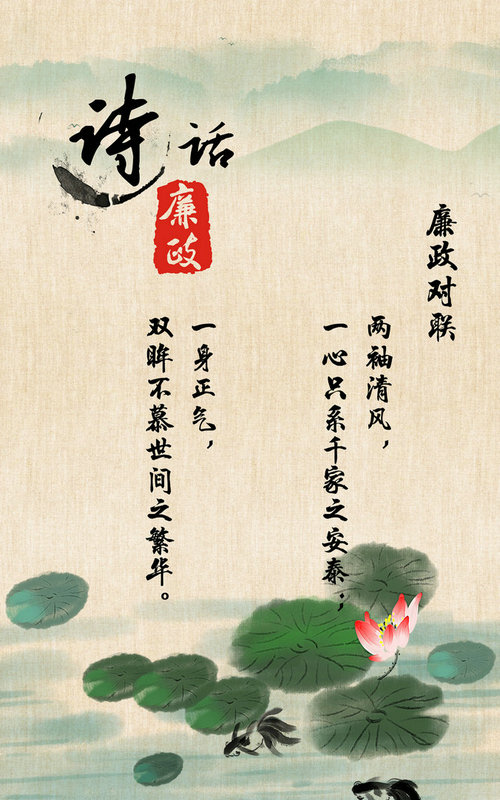 诗话
廉政
廉政对联
两袖清风，
一心只系千家之安泰；
一身正气，
双眸不慕世间之繁华。